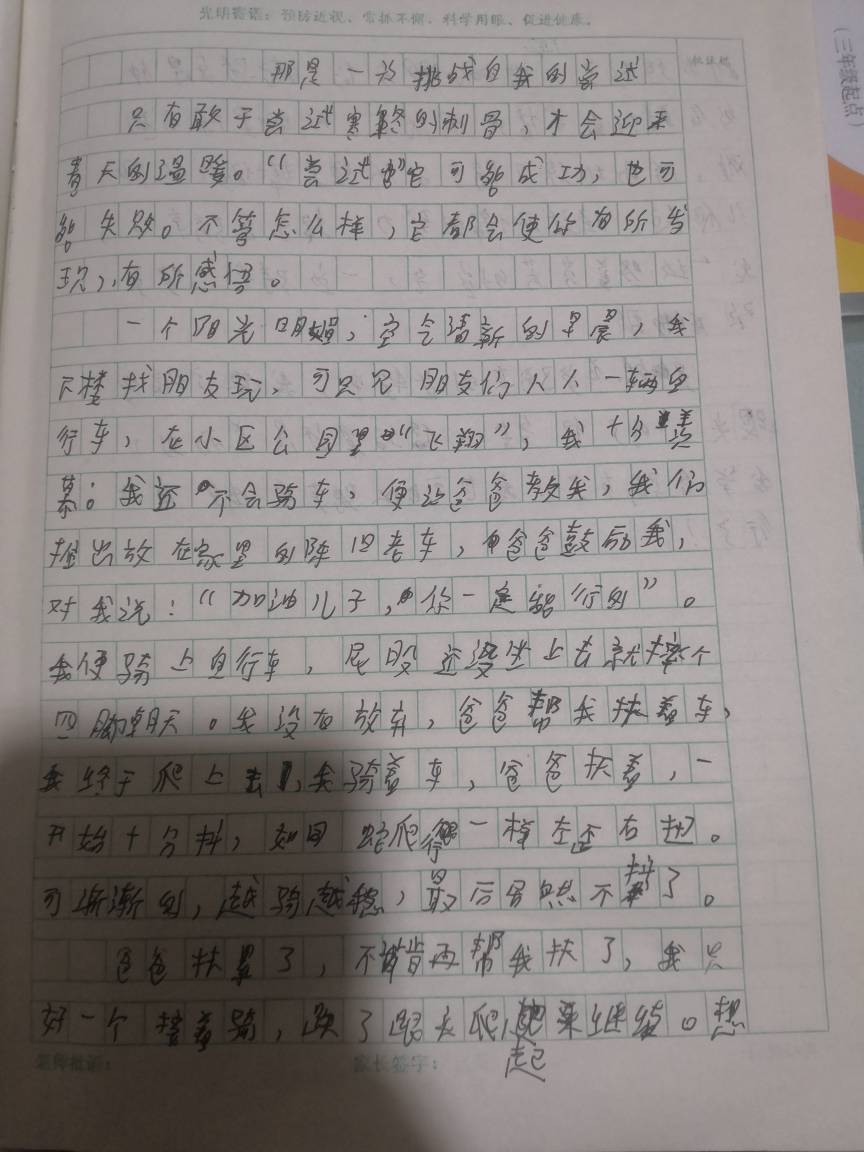 光明提醒：预防近视、常抓不懈、科学用眼、促进健康。
(三年级起点)
那是一次挑战自我的尝试
只有敢于尝试寒终的刺骨，才会迎来
青天的温暖。“尝试”它可能成功，也可
能失败。不管怎么样，它都会使你有所发
现，有所感悟。
一个阳光明媚，空气清新的早晨，我
下楼找朋友玩，可只见朋友们人人一辆自
行车，在小区公园里“飞翔”，我十分羡
慕。我还不会骑车，便让爸爸教我，我们
推出放在家里的陈旧老车，爸爸鼓励我，
对我说：“加油儿子，你一定能行的”。
我便骑上自行车，屁股还没坐上去就摔个
四脚朝天。我没有放弃，爸爸帮我扶着车，
我终于爬上去，我骑着车，爸爸扶着，一
开始十分抖，如同蛇爬行一样左歪右扭。
可渐渐的，越骑越稳，最后居然不抖了。
爸爸扶累了，不肯再帮我扶了，我只
好一个接着骑，跌了跟头爬起来继续。想
老师批语：
家长签字：